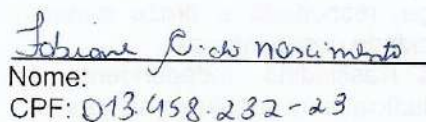 Fabiane C. do nascimento
Nome:
CPF: 013.458.232-23